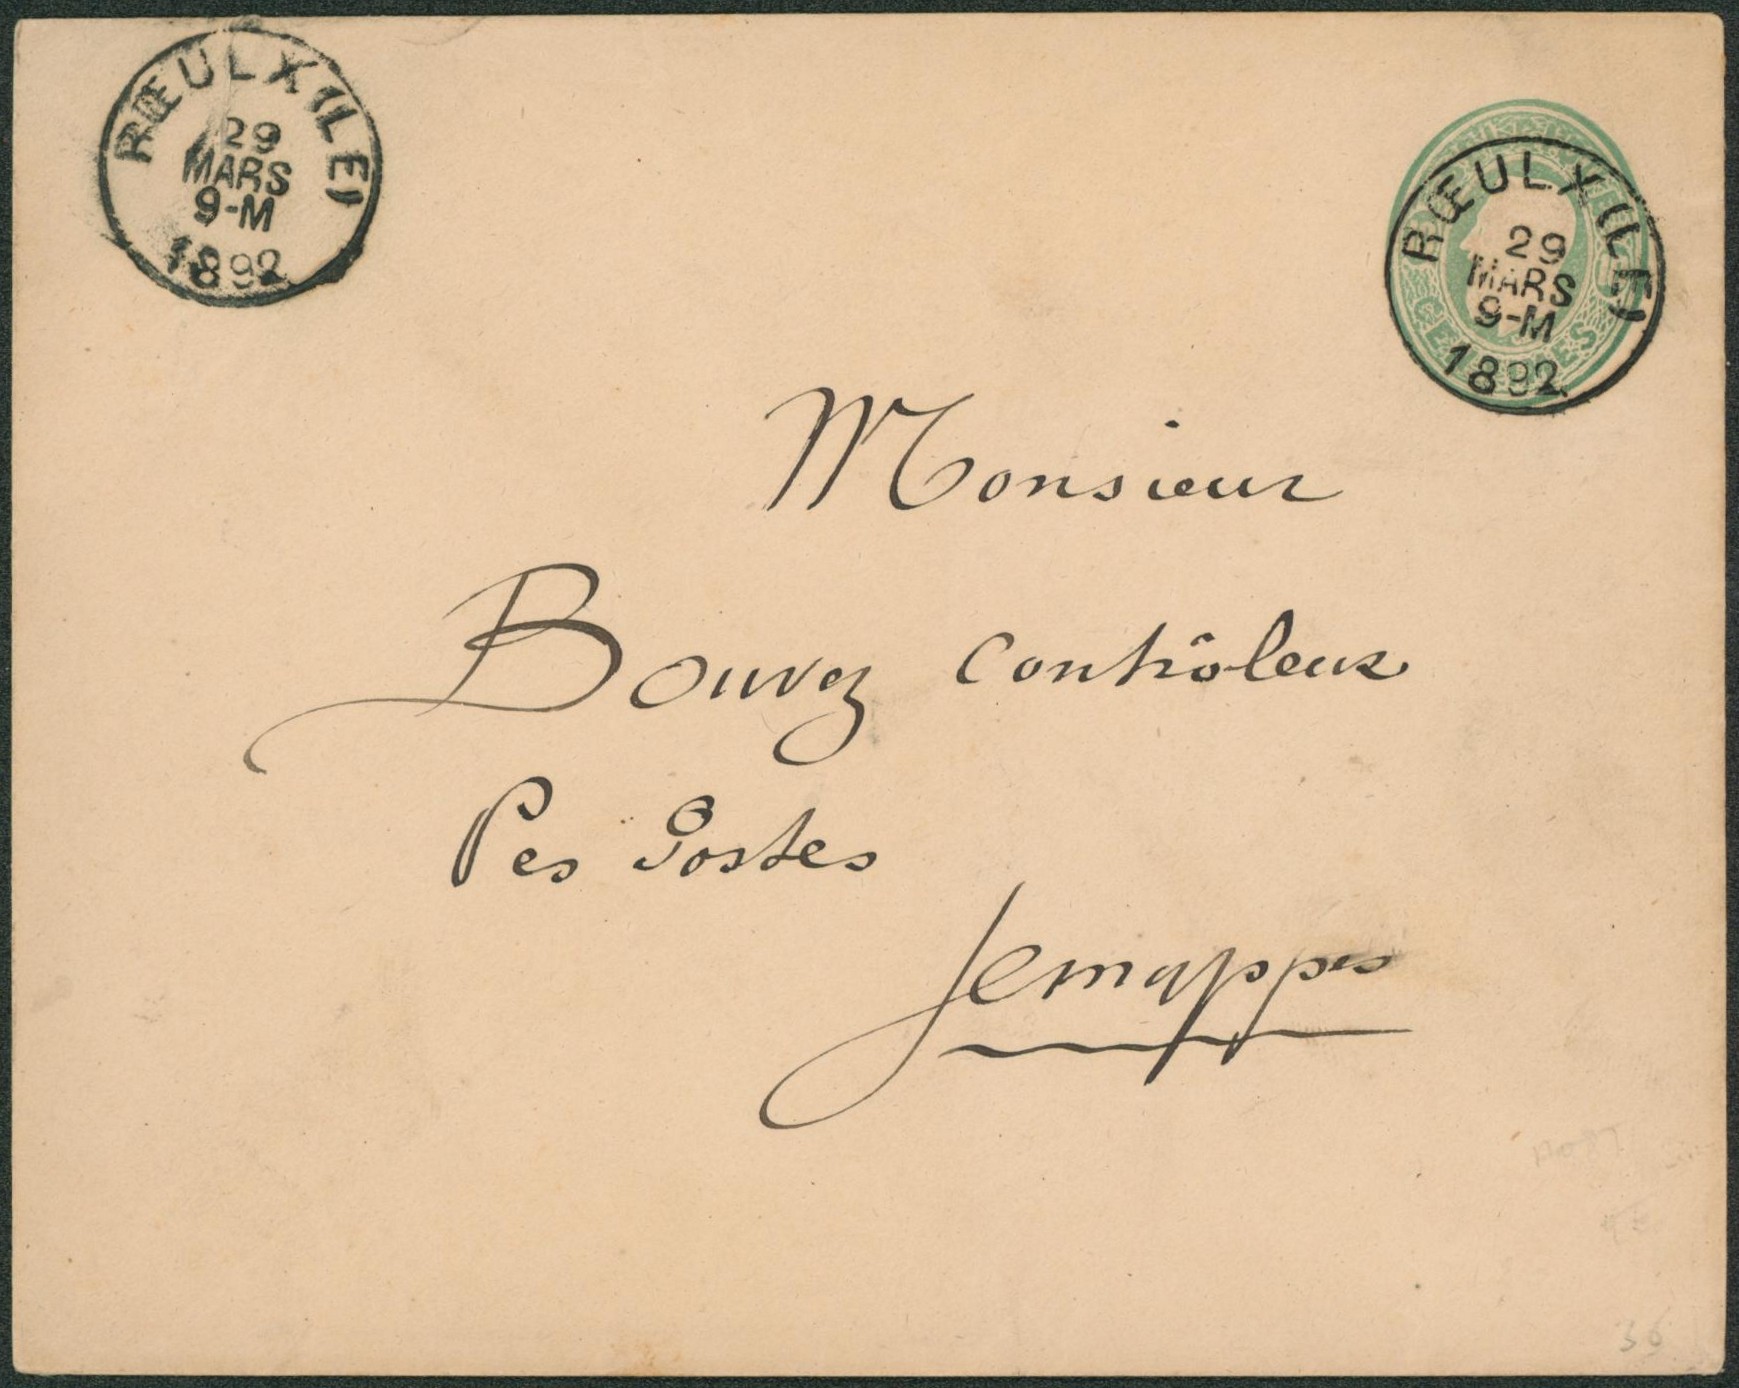 RŒULX (LE)
29
MARS
9-M
1892
RŒULX (LE)
29
MARS
9-M
1892
Monsieur
Bouvez Contrôleur
Des Postes
Jemappes
36